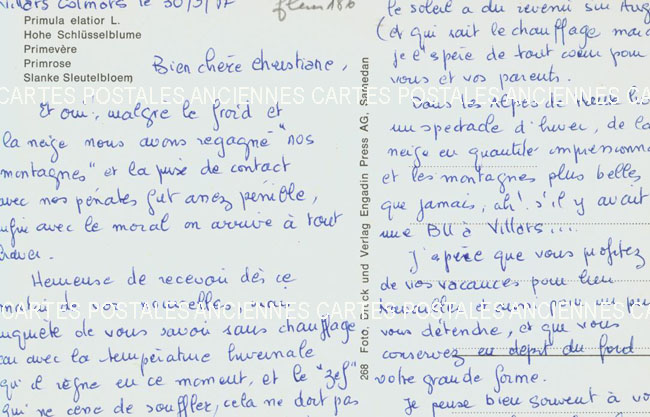 Villars Colmars le 30/3/87
Primula elatior L.
Hohe Schlüsselblume
Primevère
Primrose
Slanke Sleutelbloem
Bien chère Christiane,
CARTES POSTALES ANCIENNES CARTES POSTALES ANCIENNES
Et oui, malgré le froid et
la neige nous avons regagné "nos
montagnes" et la prise de contact
avec nos pénates fut assez pénible,
enfin avec le moral on arrive à tout
braver.
Heureuse de recevoir dès ce
de vos nouvelles mais
inquiète de vous savoir sans chauffage
avec la température hivernale
qu'il règne en ce moment, et le "zef"
qui ne cesse de souffler, cela ne doit pas
CARTES POSTALES ANCIENNES CARTES POSTALES ANCIENNES
268 Foto, Druck und Verlag Engadin Press AG, Samedan
le soleil a du revenir sur
(et qui sait le chauffage
je l'espère de tout coeur pour
vous et vos parents.
Dans les Alpes de
un spectacle d'hiver, de la
neige en quantité
et les montagnes plus belles
que jamais, ah! s'il y avait
une BU à Villars....
J'espère que vous profitez
de vos vacances pour bien
vous détendre, et que vous
conservez en dépit du froid
votre grande forme.
Je pense bien souvent à